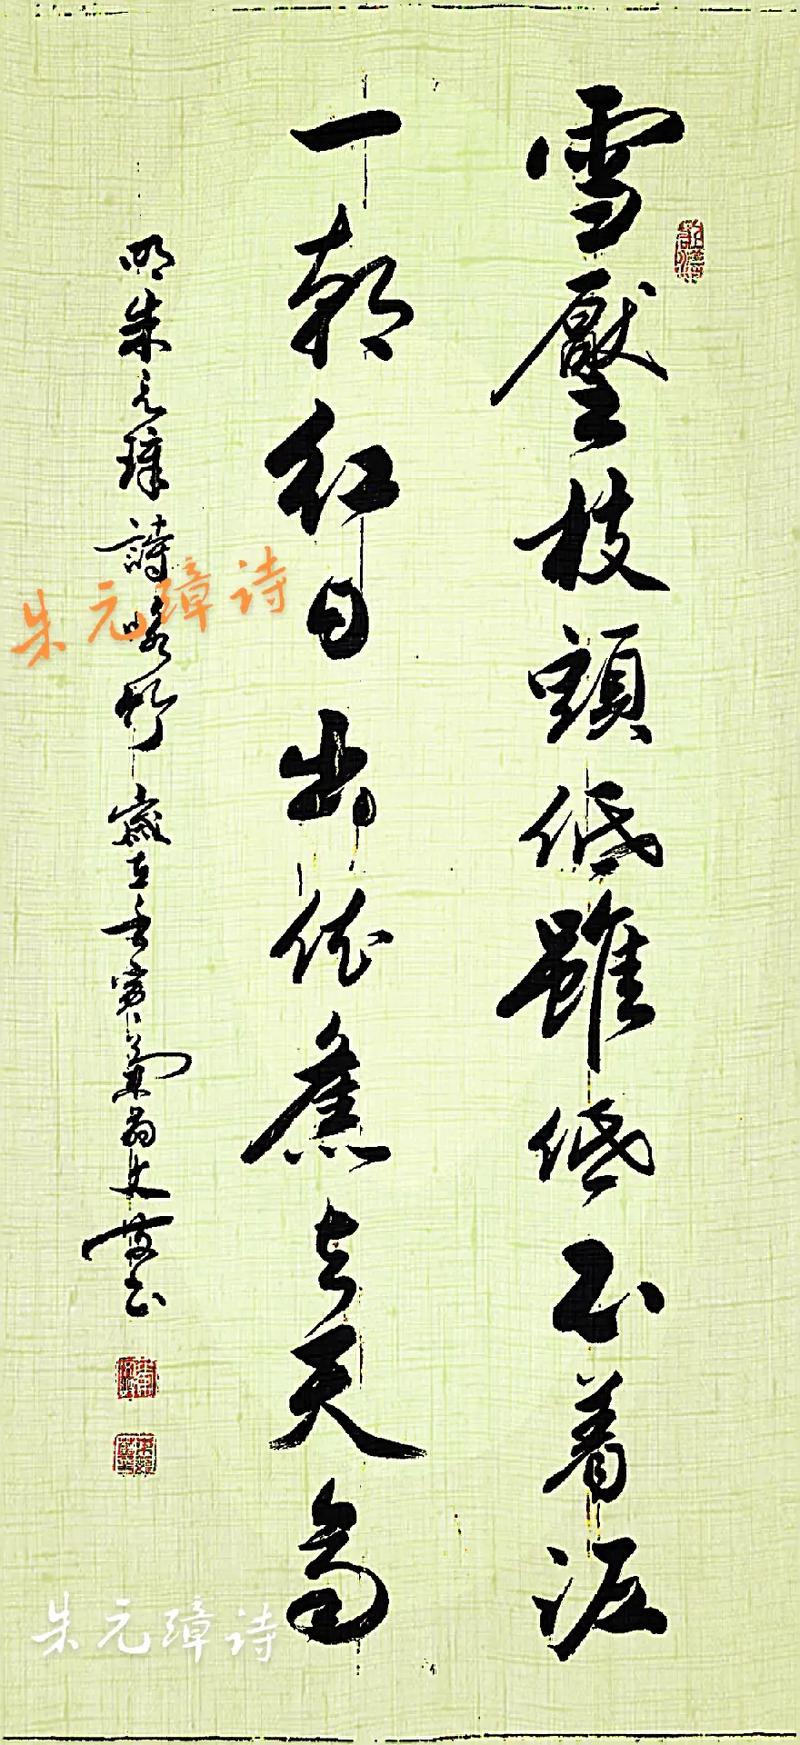 雪壓枝頭低雖低不着泥
一朝紅日出依舊与天高
明朱元璋詩咏竹 歲在壬寅菊翁文
朱元璋诗
朱元璋诗